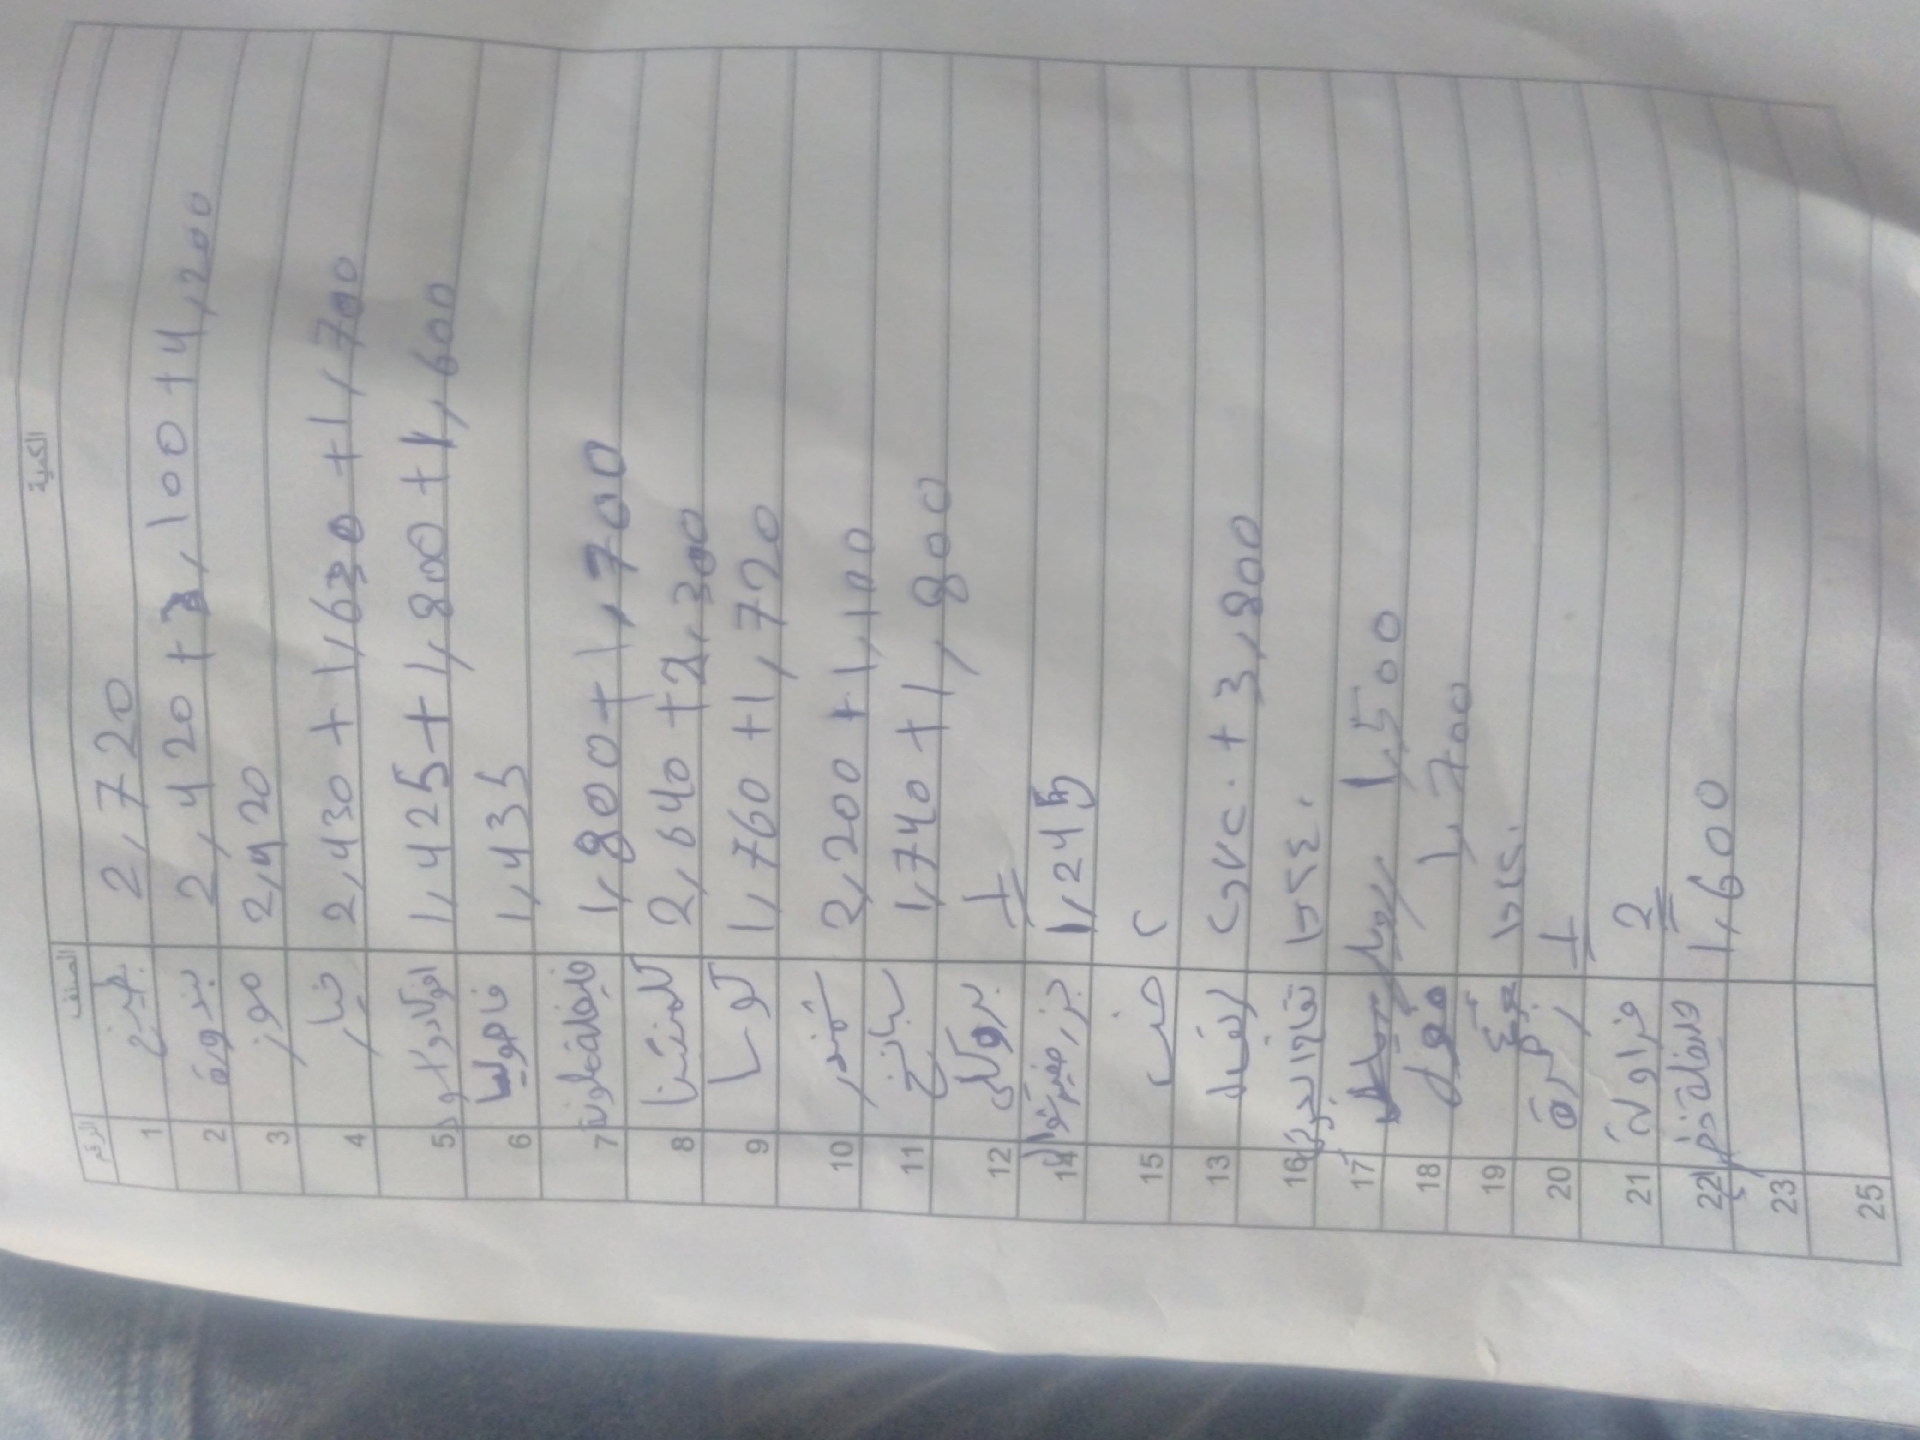 الرقم الصنف الكمية
1 بطيخ 2,720
2 بندورة 2,420 + 3,100 + 4,200
3 موز 2,420
4 خيار 2,430 + 1,630 + 1,700
5 افوكادو 1,425 + 1,800 + 1,600
6 فاصوليا 1,435
7 1,800 + 1,700
8 كلمنتينا 2,640 + 2,300
9 كوسا 1,760 + 1,720
10 شمندر 2,200 + 1,100
11 سبانخ 1,740 + 1,800
12 بروكلي 1
14 جزر 1,245
15 خس ٢
13 + 3,800
16 ١,٢٤٠
17 1,500
18 فول 1,700
19
20 زهرة 1
21 فراولة 2
22 1,600
23
25